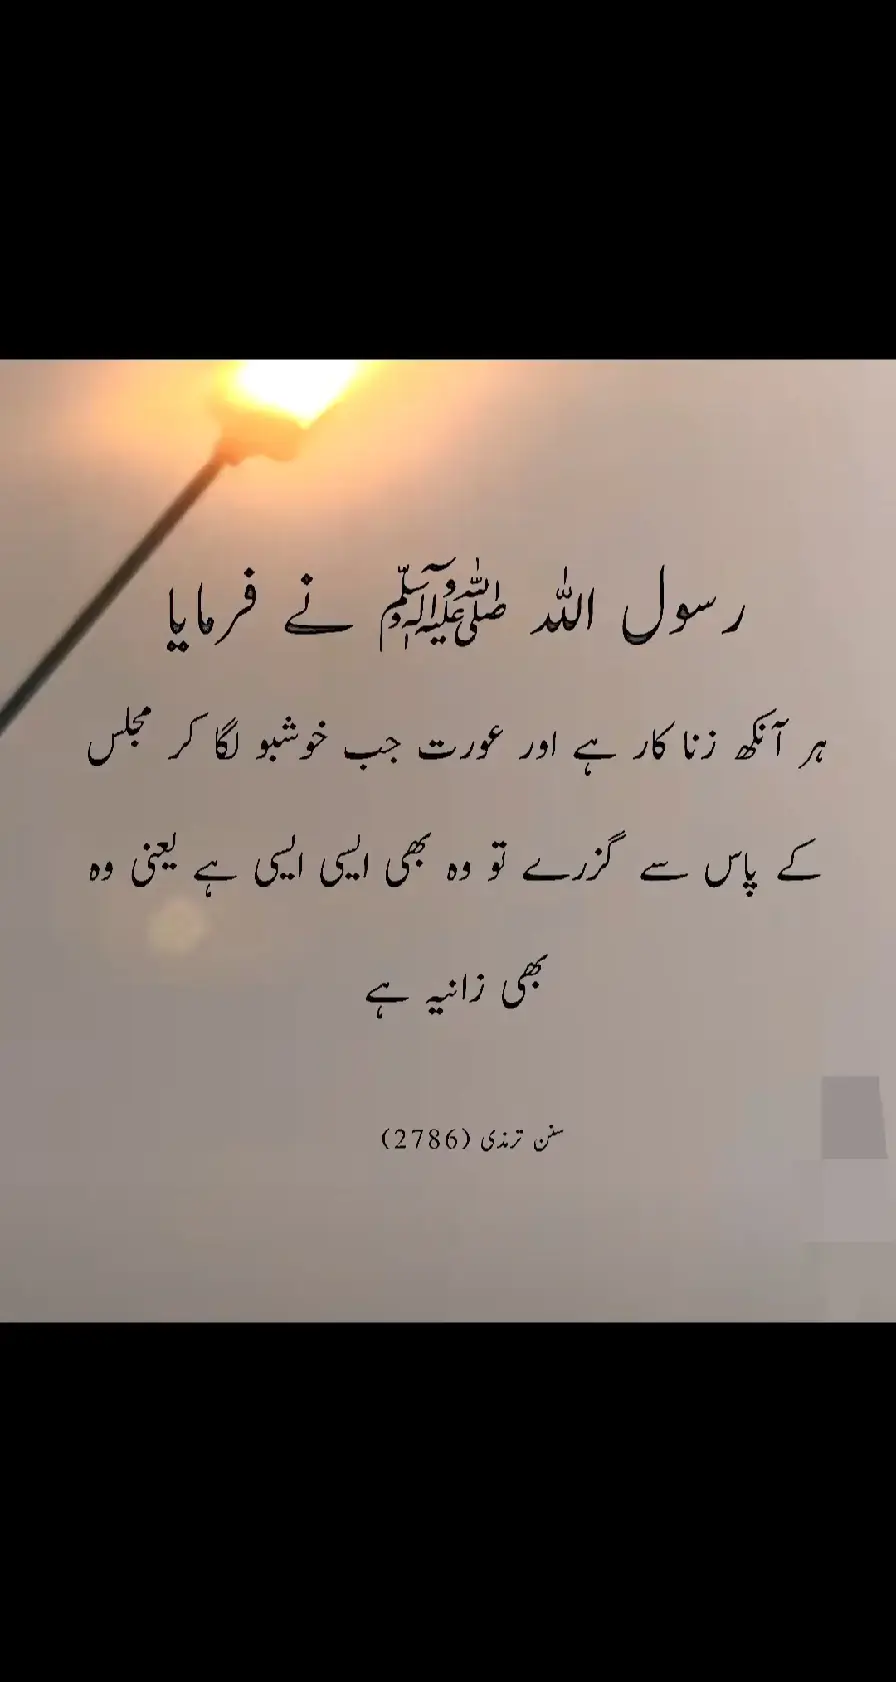 رسول اللہ ﷺ نے فرمایا
ہر آنکھ زنا کار ہے اور عورت جب خوشبو لگا کر مجلس
کے پاس سے گزرے تو وہ بھی ایسی ایسی ہے یعنی وہ
بھی زانیہ ہے
سنن ترمذی (2786)